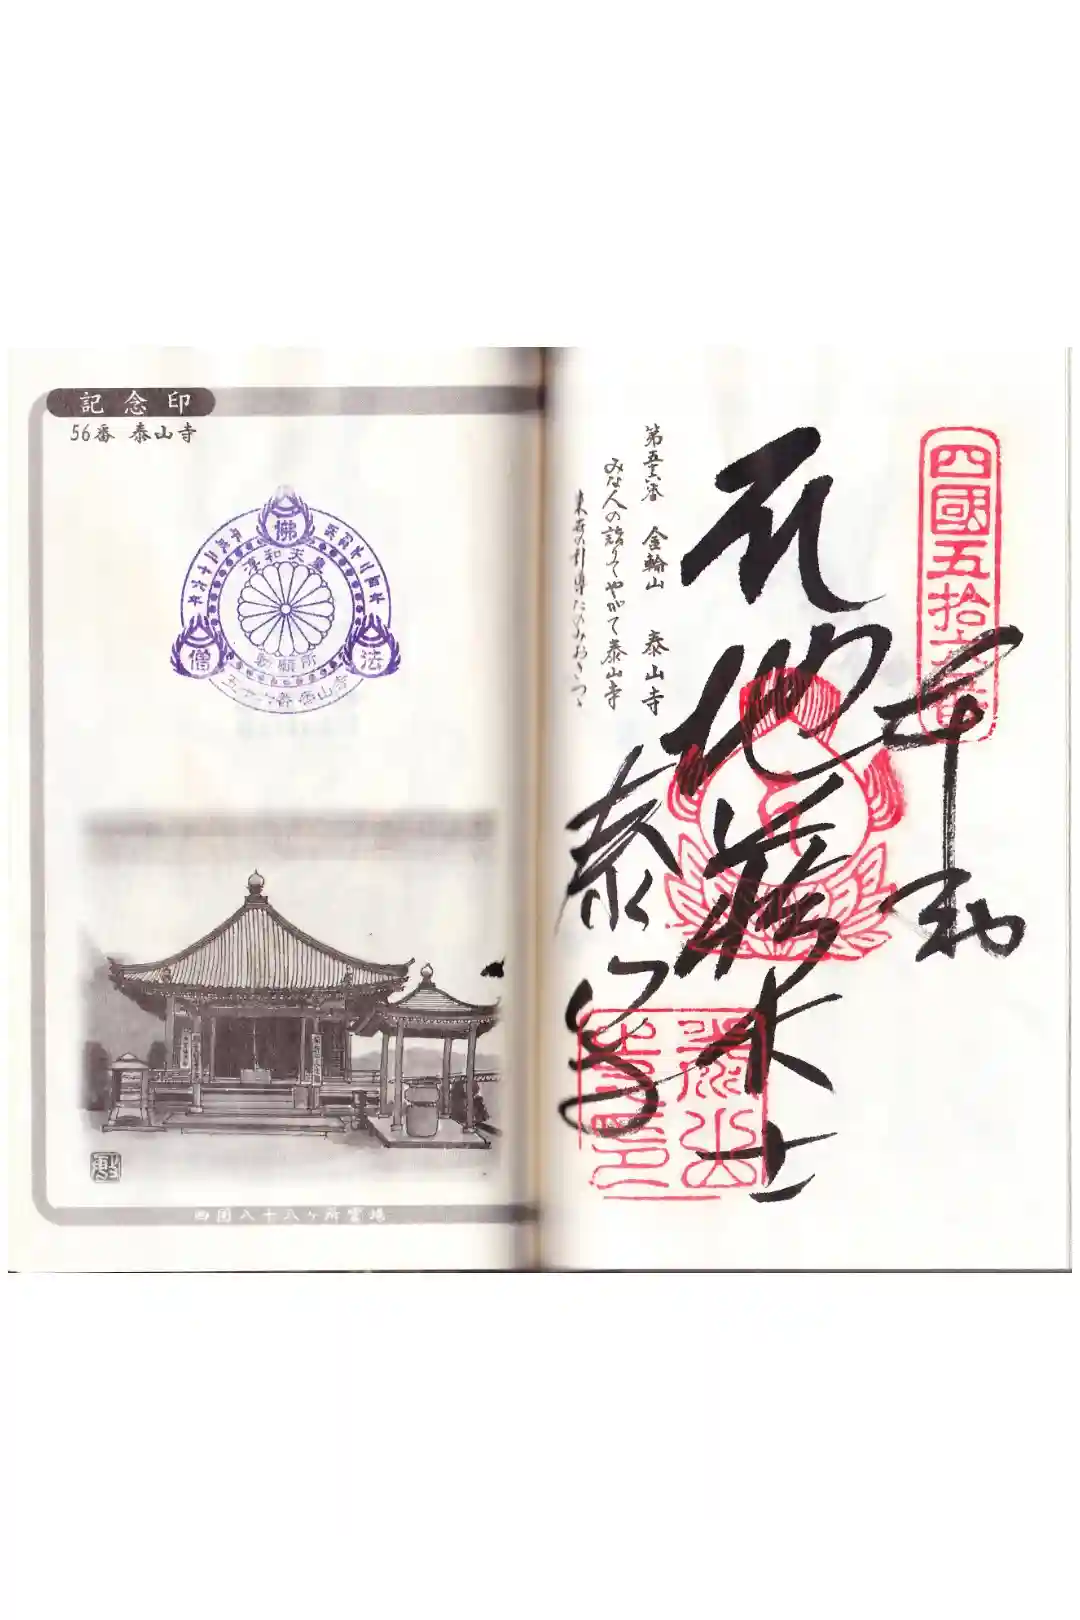 記念印
56番 泰山寺
佛
法
僧
淳和天皇
勅願所
五十六番泰山寺
四国八十八ヶ所霊場
四國五拾六番
奉納
地蔵大士
泰山寺
第五十六番 金輪山 泰山寺
みな人の詣りてやがて泰山寺
来世の引導たのみおきつゝ